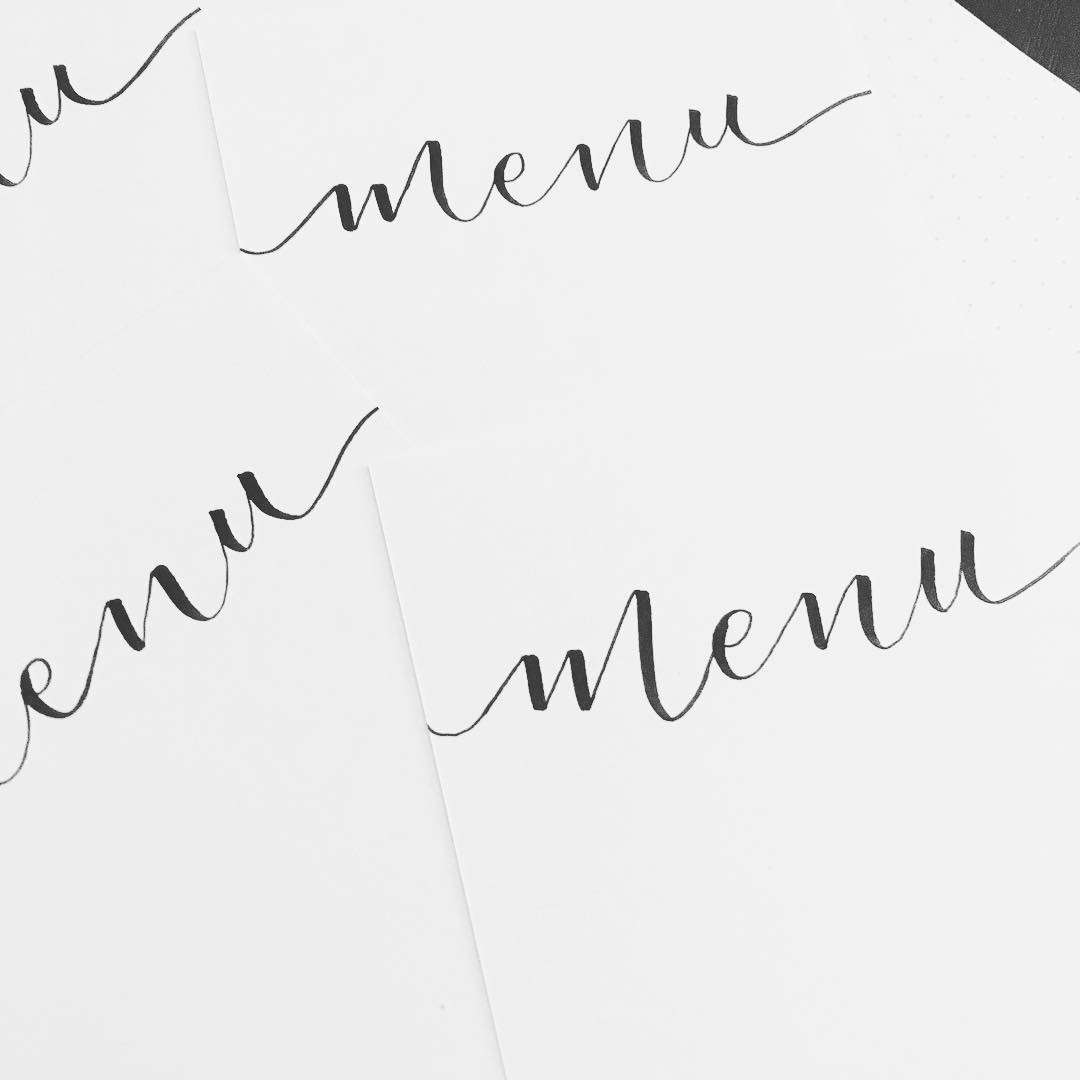 u
menu
enu
menu